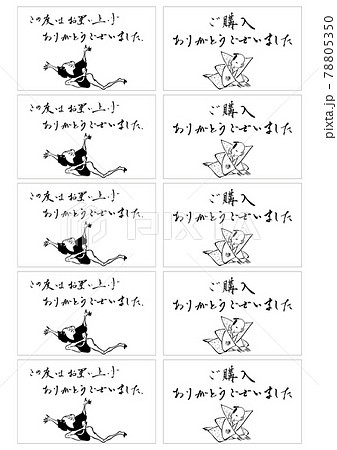 この度はお買い上げ
ありがとうございました。
ご購入
ありがとうございました
この度はお買い上げ
ありがとうございました。
ご購入
ありがとうございました
この度はお買い上げ
ありがとうございました。
ご購入
ありがとうございました
この度はお買い上げ
ありがとうございました。
ご購入
ありがとうございました
この度はお買い上げ
ありがとうございました。
ご購入
ありがとうございました
PIXTA
pixta.jp - 78805350